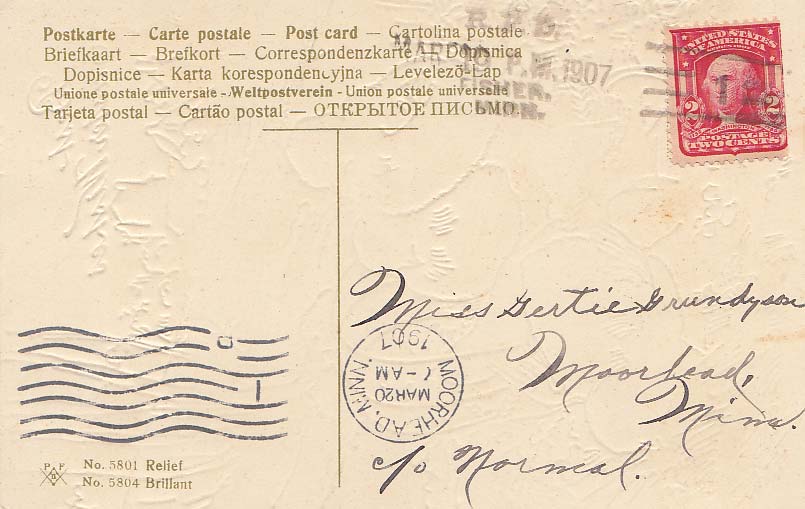 Postkarte — Carte postale — Post card — Cartolina postale
Briefkaart — Brefkort — Correspondenzkarte — Dopisnica
Dopisnice — Karta korespondencyjna — Levelező-Lap
Unione postale universale - Weltpostverein - Union postale universelle
Tarjeta postal — Cartão postal — ОТКРЫТОЕ ПИСЬМО.
R.F.D.
MAR P.M. 1907
UNITED STATES
OF AMERICA
2 2
WASHINGTON
POSTAGE
TWO CENTS
Miss Gertie Grundyson
Moorhead,
Minn.
c/o Normal.
MOORHEAD, MINN.
MAR 20
-AM
1907
P F
B
No. 5801 Relief
No. 5804 Brillant